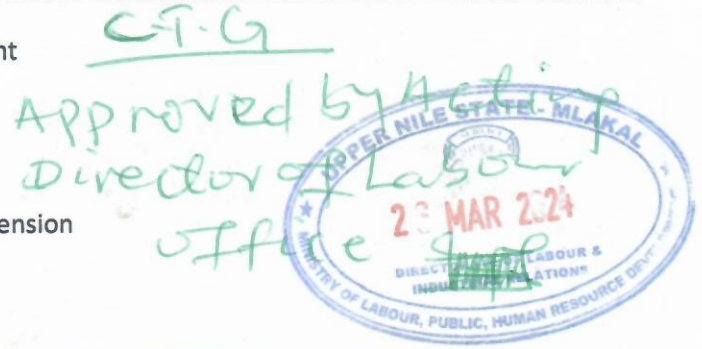 nt
C-T-G
Approved by Acting
Director of Labour
office
ension
UPPER NILE STATE - MLAKAL
MAR 2024
LABOUR &
INDUSTRIAL RELATIONS
MINISTRY OF LABOUR, PUBLIC, HUMAN RESOURCE